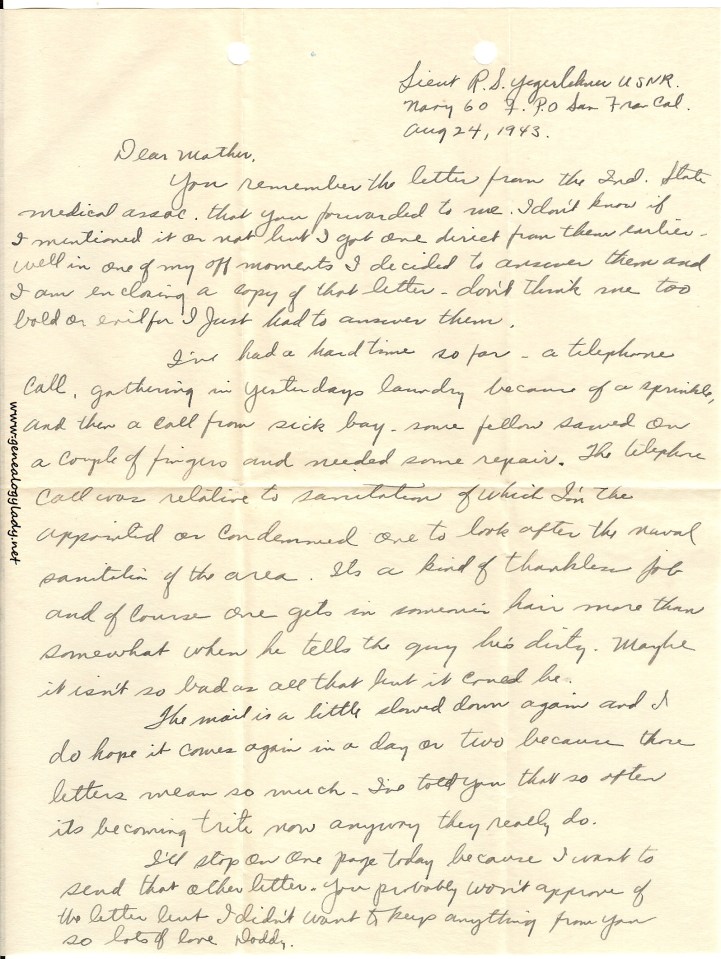 Lieut R.S. Yegerlehner USNR.
Navy 60 F.P.O San Fran Cal.
Aug 24, 1943.
Dear Mother,
You remember the letter from the Ind. State
medical assoc. that you forwarded to me. I don't know if
I mentioned it or not but I got one direct from them earlier -
well in one of my off moments I decided to answer them and
I am enclosing a copy of that letter - don't think me too
bold or evil for I Just had to answer them.
I've had a hard time so far - a telephone
call, gathering in yesterdays laundry because of a sprinkle,
and then a call from sick bay - some fellow sawed on
a couple of fingers and needed some repair. The telephone
call was relative to sanitation of which I'm the
appointed or condemned one to look after the naval
sanitation of the area. Its a kind of thankless job
and of course one gets in someones hair more than
somewhat when he tells the guy he's dirty. Maybe
it isn't so bad as all that but it could be.
The mail is a little slowed down again and I
do hope it comes again in a day or two because those
letters mean so much - I've told you that so often
its becoming trite now anyway they really do.
I'll stop on one page today because I want to
send that other letter. You probably won't approve of
the letter but I didn't want to keep anything from you
so lots of love Daddy.
www.genealogylady.net